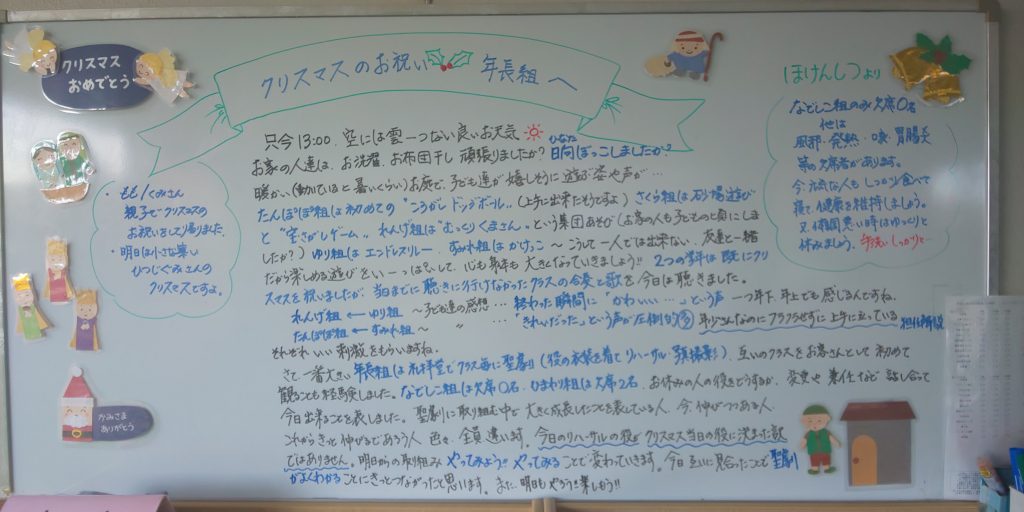 クリスマス
おめでとう
クリスマスのお祝い 年長組へ
只今13:00 空には雲一つない良いお天気
お家の人達は、お洗濯、お布団干し 頑張りましたか? 日向ぼっこしましたか?
ひなた
暖かい(動いていると暑いくらい)お庭で、子ども達が嬉しそうに遊ぶ姿や声が…
たんぽぽ組は初めての“ころがしドッジボール”(上手に出来たそうですよ) さくら組は砂場遊び
と“宝さがしゲーム” れんげ組は“むっくりくまさん”という集団あそび(お家の人も子どもの頃にしま
したか?) ゆり組はエンドレスリレー すみれ組はかけっこ〜こうして一人では出来ない、友達と一緒
だから楽しめる遊びをい一っぱいして、心も身体も大きくなっていきましょう!! 2つの学年は既にクリ
スマスを祝いましたが、当日までに聴きに行けなかったクラスの合奏と歌を今日は聴きました。
れんげ組 ← ゆり組 〜子ども達の感想… 終わった瞬間に「かわいい…」という声 一つ年下、年上でも感じるんですね。
たんぽぽ組 ← すみれ組〜 〃 …「きれいだった」という声が圧倒的
年少さんなのにフラフラせずに上手に立っている
それぞれいい刺激をもらいますね
さて、一番大きい年長組は礼拝堂でクラス毎に聖劇(役の衣装を着てリハーサル・写真撮影)、互いのクラスをお客さんとして初めて
観ることも経験しました。なでしこ組は欠席0名、ひまわり組は欠席2名、お休みの人の役をどうするか、変更や兼任など話し合って
今日出来ることを表しました。聖劇に取り組む中で大きく成長したことを表している人、今、伸びつつある人
これからきっと伸びるであろう人 色々、全員違います。今日のリハーサルの役がクリスマス当日の役に決まった訳
ではありません。明日からの取組み やってみよう!! やってみることで変わっていきます。今日互いに見合ったことで聖劇
がよくわかることにきっとつながったと思います。また、明日もやろう!!楽しもう!!
・もも1くみさん
親子でクリスマスの
お祝いをして帰りました
・明日は小さな集い
ひつじぐみさんの
クリスマスですよ。
かみさま
ありがとう
ほけんしつより
なでしこ組のみ欠席0名
他は
風邪・発熱・咳・胃腸炎
等の欠席者があります。
今、元気な人もしっかり食べて
寝て、健康を維持しましょう。
又、体調悪い時はゆっくりと
休みましょう。手洗いしっかりと